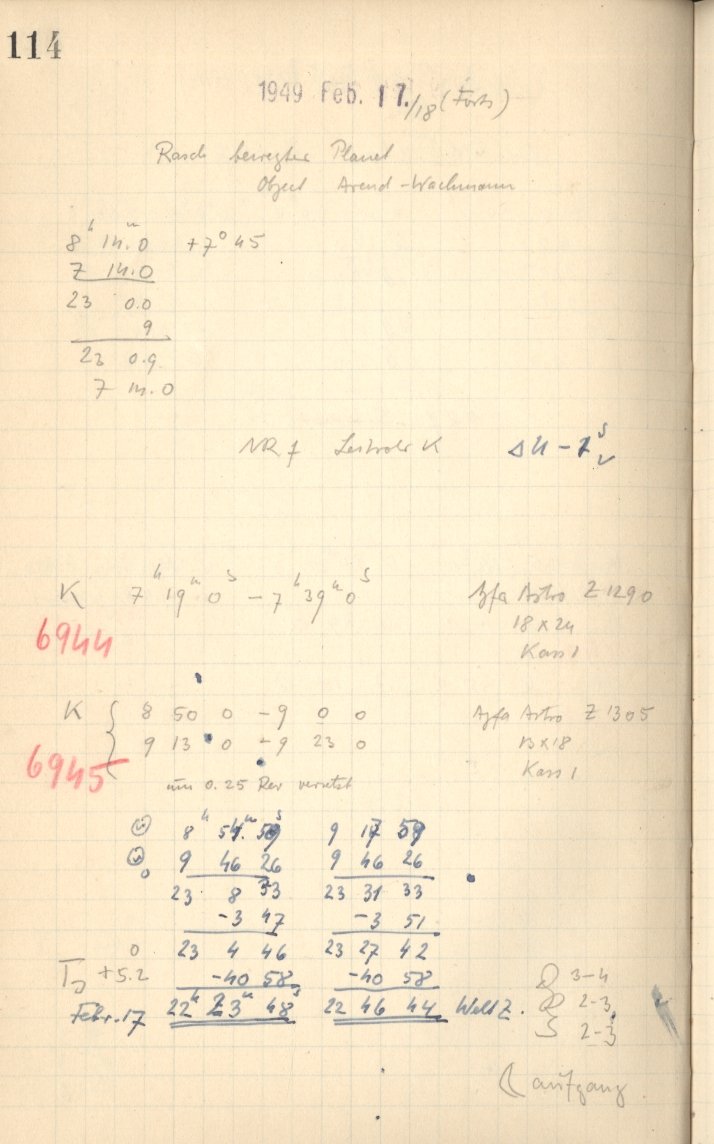 114
1949 Feb. 17./18 (Forts)
Rasch bewegter Planet
Object Arend-Wachmann
8ʰ 14ᵐ.0 +7° 45
7 14.0
23 0.0
9
23 0.9
7 14.0
NR f Leitrohr K ΔU -1ˢ
K 7ʰ 19ᵐ 0ˢ - 7ʰ 39ᵐ 0ˢ Agfa Astro Z 1290
6944 18 x 24
Kass 1
K 8 50 0 - 9 0 0 Agfa Astro Z 1305
9 13 0 - 9 23 0 13 x 18
6945 Kass 1
um 0.25 Rev versetzt
8ʰ 54ᵐ 59ˢ 9 17 59
9 46 26 9 46 26
23 8 33 23 31 33
-3 47 -3 51
23 4 46 23 27 42
+5.2 -40 58 -40 58
Febr. 17 22ʰ 23ᵐ 48ˢ 22 46 44 Welt Z.
3-4
2-3
S 2-3
☾ aufgang